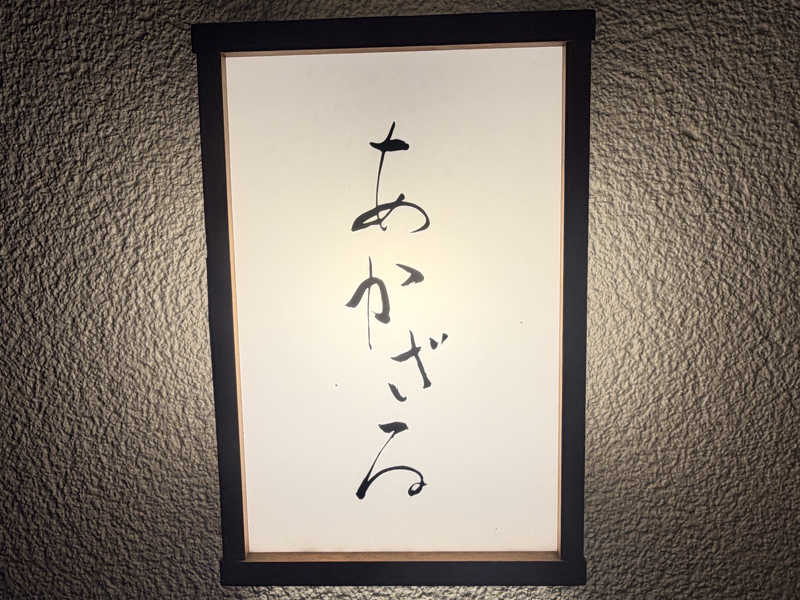 あかざる